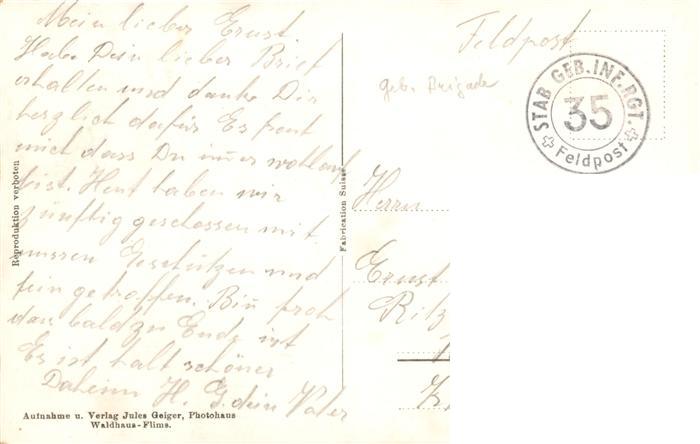 Mein lieber Ernst
Habe Dein lieber Brief
erhalten und danke Dir
herzlich dafür Es freut
mich dass Du immer wohlauf
bist. Heut haben wir
zünftig geschossen mit
unssen Geschützen und
fein getroffen. Bin froh
das bald zu Ende ist
Es ist halt schöner
Daheim H. G. dein Vater
Aufnahme u. Verlag Jules Geiger, Photohaus
Waldhaus-Flims.
Reproduktion verboten
Fabrication Suisse
Feldpost
geb. Brigade
STAB GEB. INF. RGT.
35
Feldpost
Herrn
Ernst
Ritz